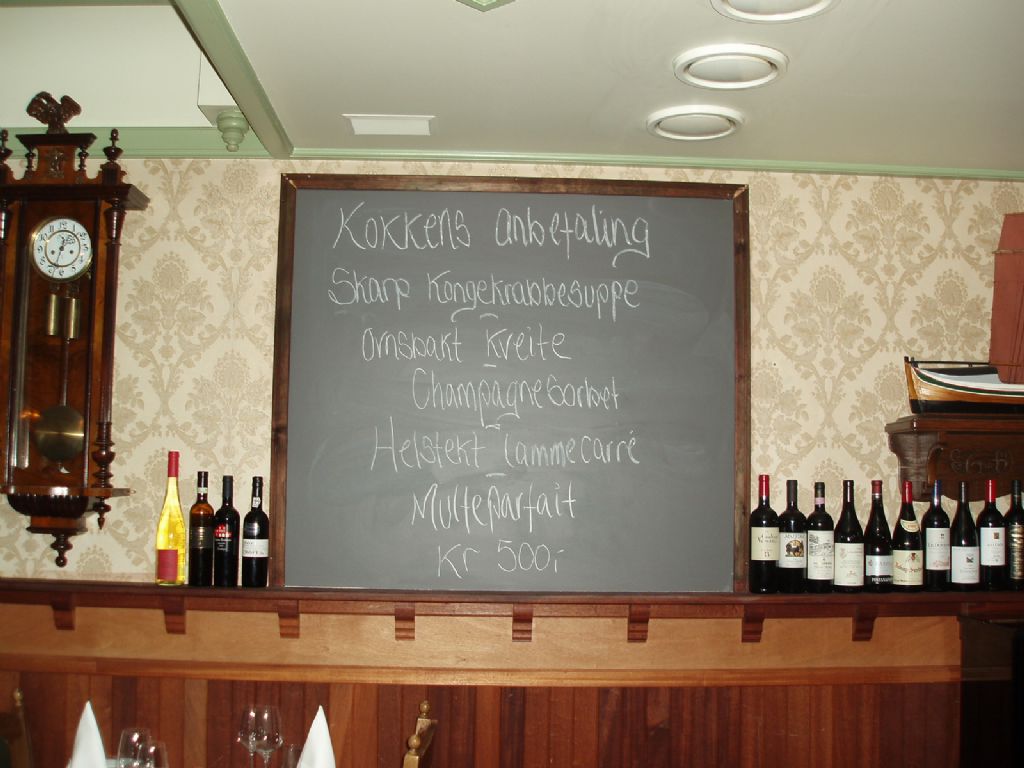 Kokkens anbefaling
Skarp Kongekrabbesuppe
Ovnsbakt Kveite
Champagnesorbet
Helstekt lammecarré
Multeparfait
Kr 500,-